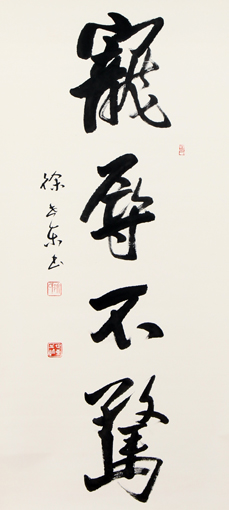 寵辱不驚
徐 东书